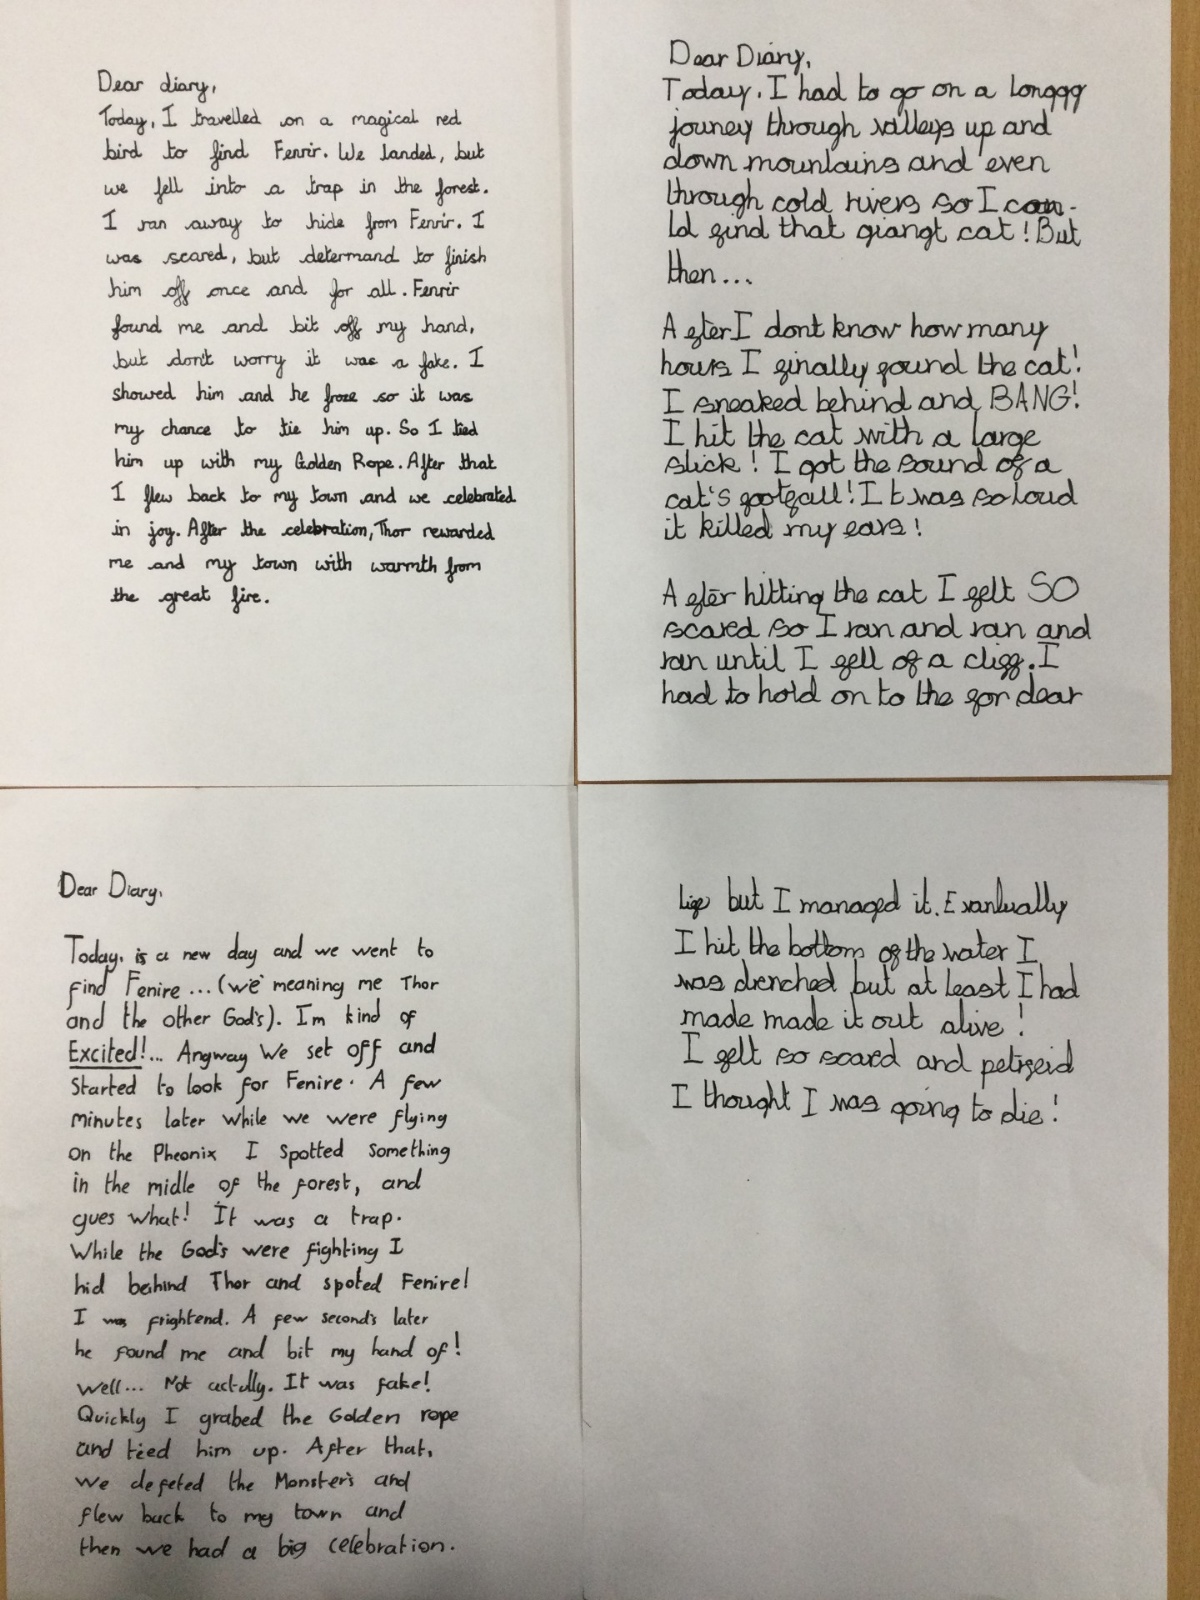 Dear diary,
Today, I travelled on a magical red
bird to find Fenrir. We landed, but
we fell into a trap in the forest.
I ran away to hide from Fenrir. I
was scared, but determand to finish
him off once and for all. Fenrir
found me and bit off my hand,
but don't worry it was a fake. I
showed him and he froze so it was
my chance to tie him up. So I tied
him up with my Golden Rope. After that
I flew back to my town and we celebrated
in joy. After the celebration, Thor rewarded
me and my town with warmth from
the great fire.
Dear Diary,
Today. I had to go on a longggg
jouney through valleys up and
down mountains and even
through cold rivers so I cou-
ld find that giangt cat! But
then...
After I dont know how many
hours I finally found the cat!
I sneaked behind and BANG!
I hit the cat with a large
stick! I got the sound of a
cat's footfall! It was so loud
it killed my ears!
After hitting the cat I felt SO
scared so I ran and ran and
ran until I fell of a cliff. I
had to hold on to the for dear
life but I managed it. Evantually
I hit the bottom of the water I
was drenched but at least I had
made made it out alive!
I felt so scared and petifeid
I thought I was going to die!
Dear Diary,
Today, is a new day and we went to
find Fenire... (we meaning me Thor
and the other God's). I'm kind of
Excited!... Angway We set off and
Started to look for Fenire. A few
minutes later while we were flying
on the Pheonix I spotted something
in the midle of the forest, and
gues what! It was a trap.
While the God's were fighting I
hid behind Thor and spoted Fenire!
I was frightend. A few second's later
he found me and bit my hand of!
Well... Not actully. It was fake!
Quickly I grabed the Golden rope
and tied him up. After that,
we defeted the Monster's and
flew back to my town and
then we had a big celebration.